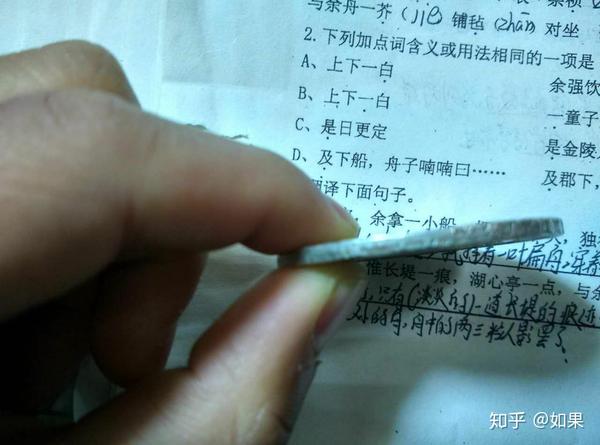 与余舟一芥(jiè)铺毡(zhān)对坐
2.下列加点词含义或用法相同的一项是
A、上下一白 余强饮
B、上下一白 一童子
C、是日更定 是金陵
D、及下船，舟子喃喃曰…… 及郡下，
译下面句子。
余拿一小船 ，独
一叶扁舟，穿着
惟长堤一痕，湖心亭一点，与余
只有(淡淡的)一道长堤的痕迹
舟中的两三粒人影罢了。
知乎 @如果